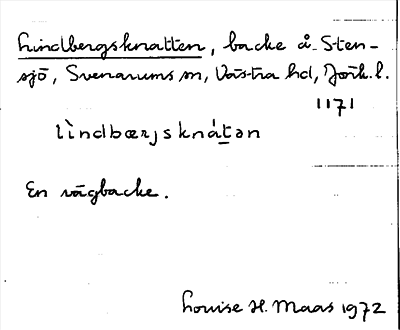 Lindbergsknatten, backe å Sten-
sjö, Svenarums sn, Västra hd, Jönk.l.
1171
lìndbærjsknát̲ən
En vägbacke.
Louise H. Maas 1972